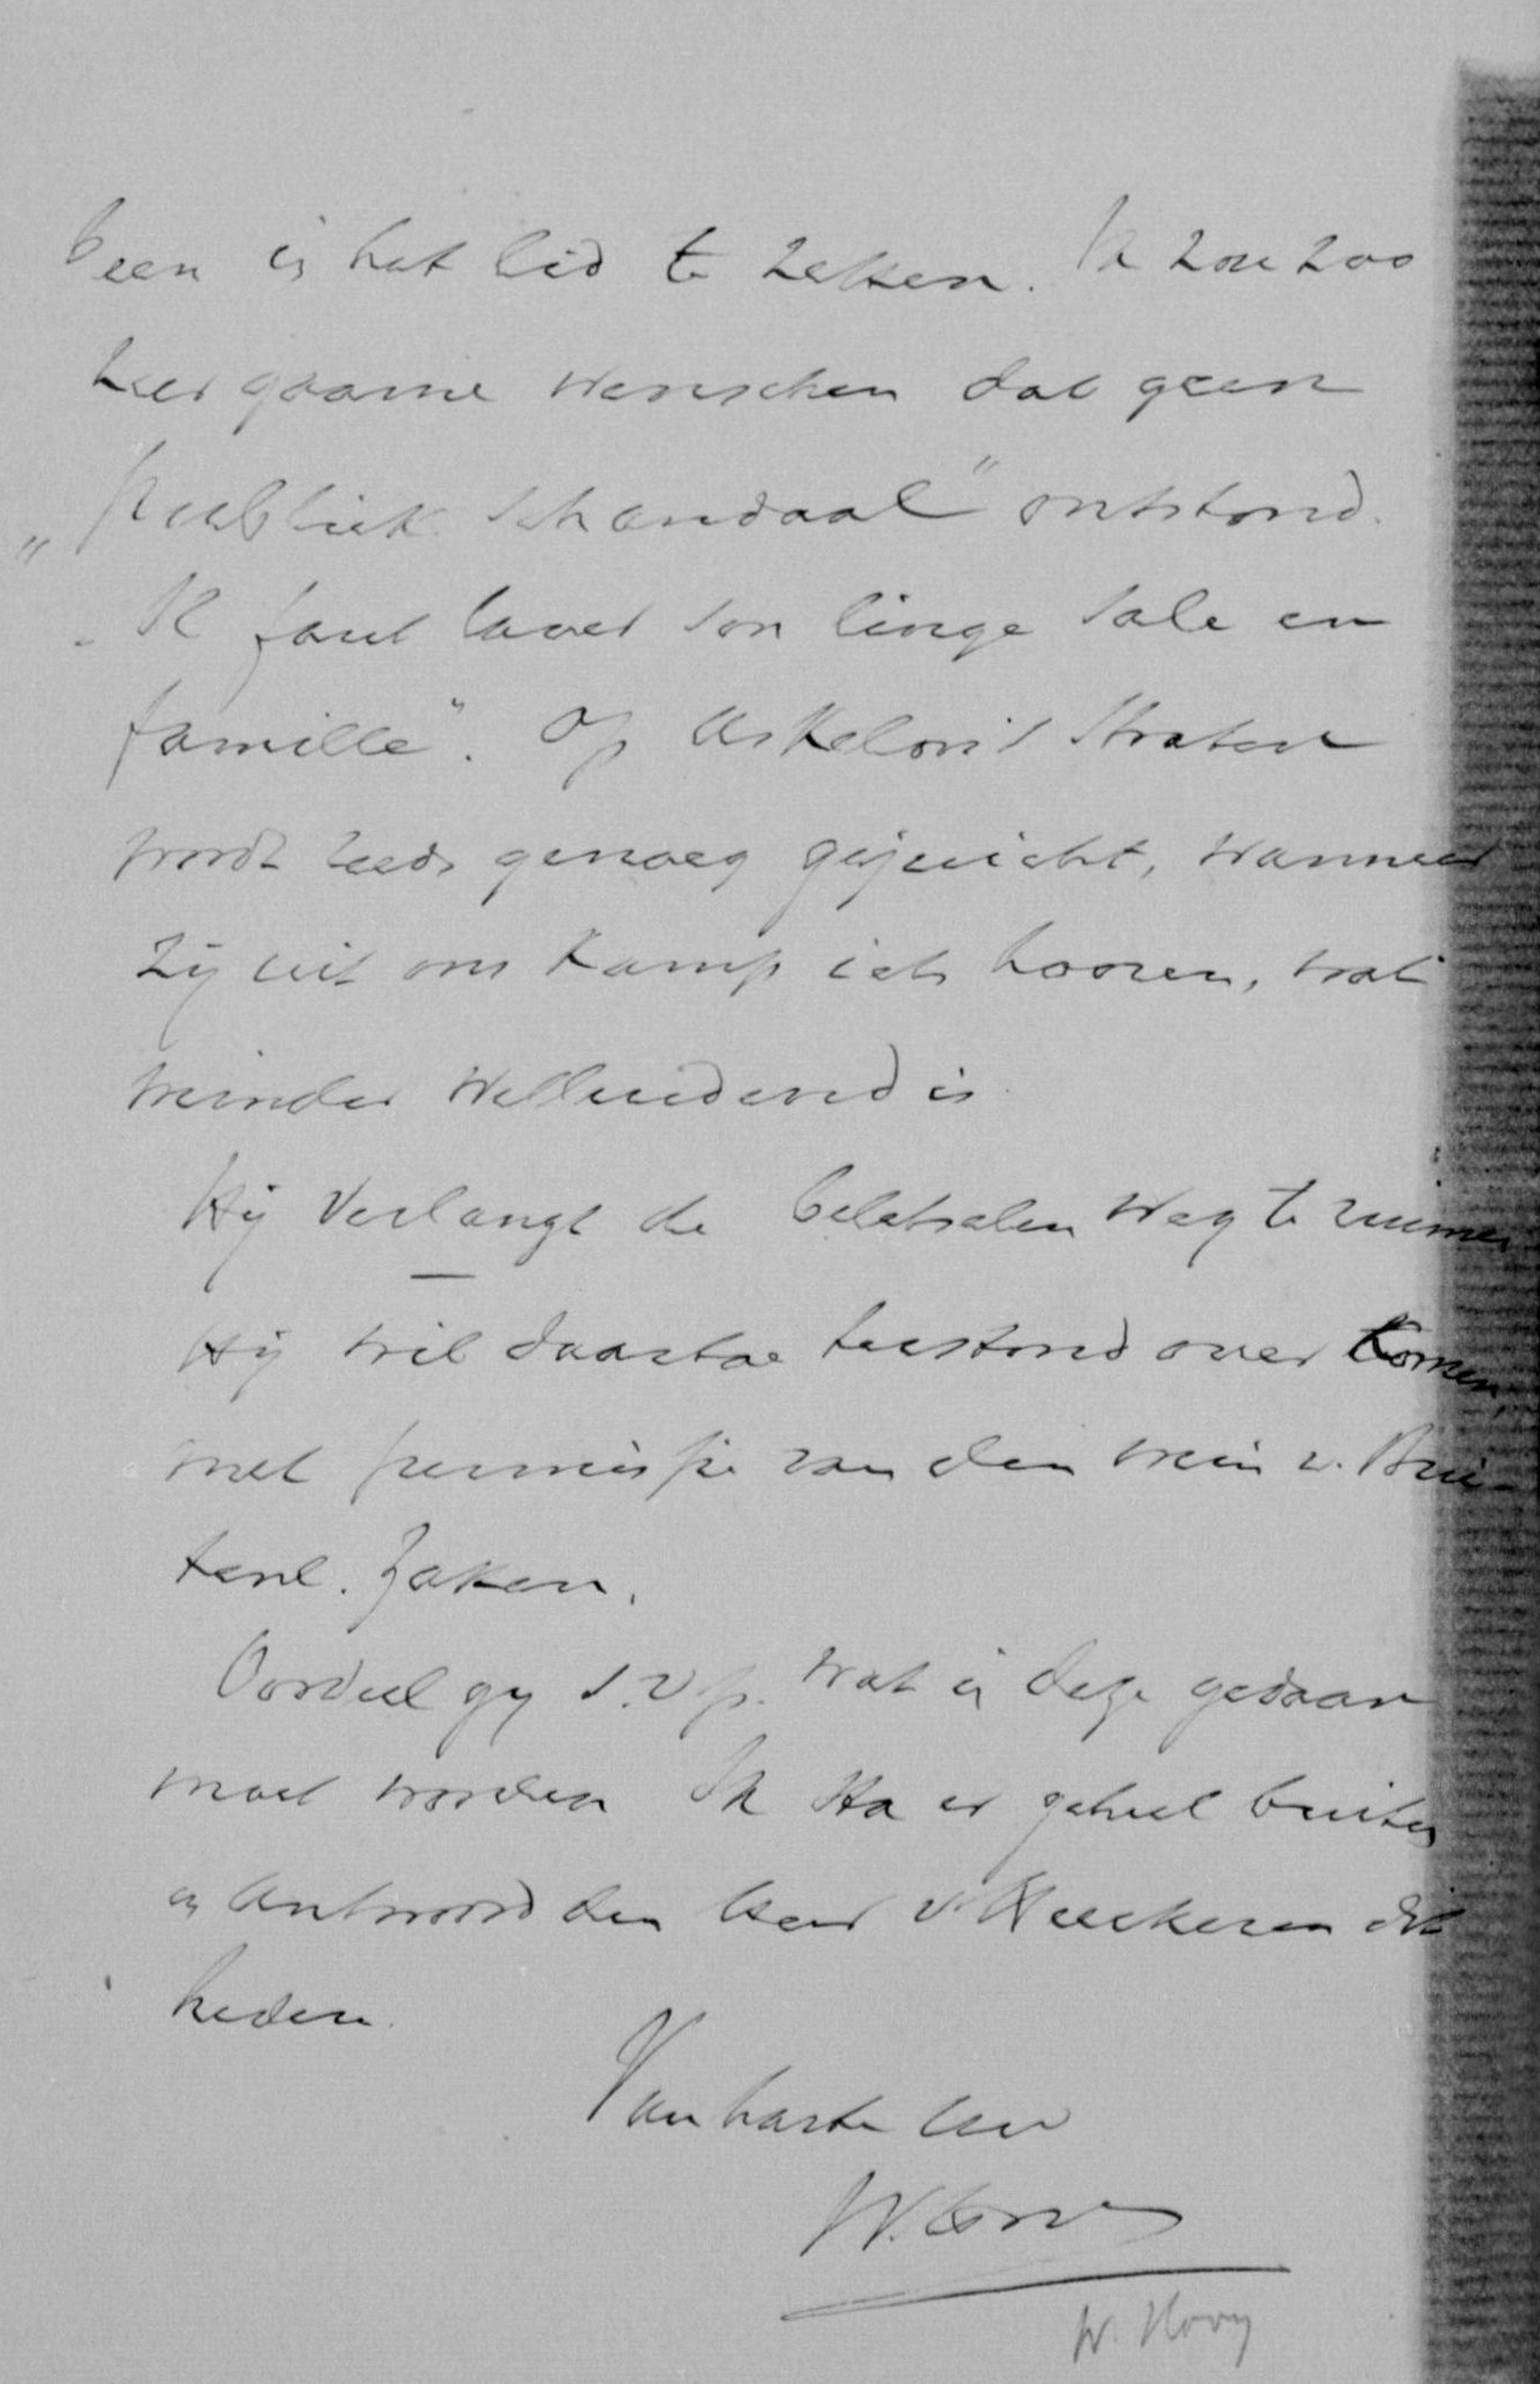 been in het lid te zetten. Ik zou zoo
zeer gaarne wenschen dat geen
„publiek schandaal" ontstond.
„Il faut laver son linge sale en
famille". Op Askelon's straten
wordt reeds genoeg gejuicht, wanneer
zij uit ons kamp iets hooren, wat
minder welluidend is.
Hij verlangt de beletselen weg te ruimen
Hij wil daartoe terstond over komen,
met permissie van den min v. Bui-
tenl. Zaken.
Oordeel gij s.v.p. wat in deze gedaan
moet worden Ik sta er geheel buiten
en antwoord den Heer v Heeckeren dit
heden.
Van harte Uw
W. Hovy
W. Hovy